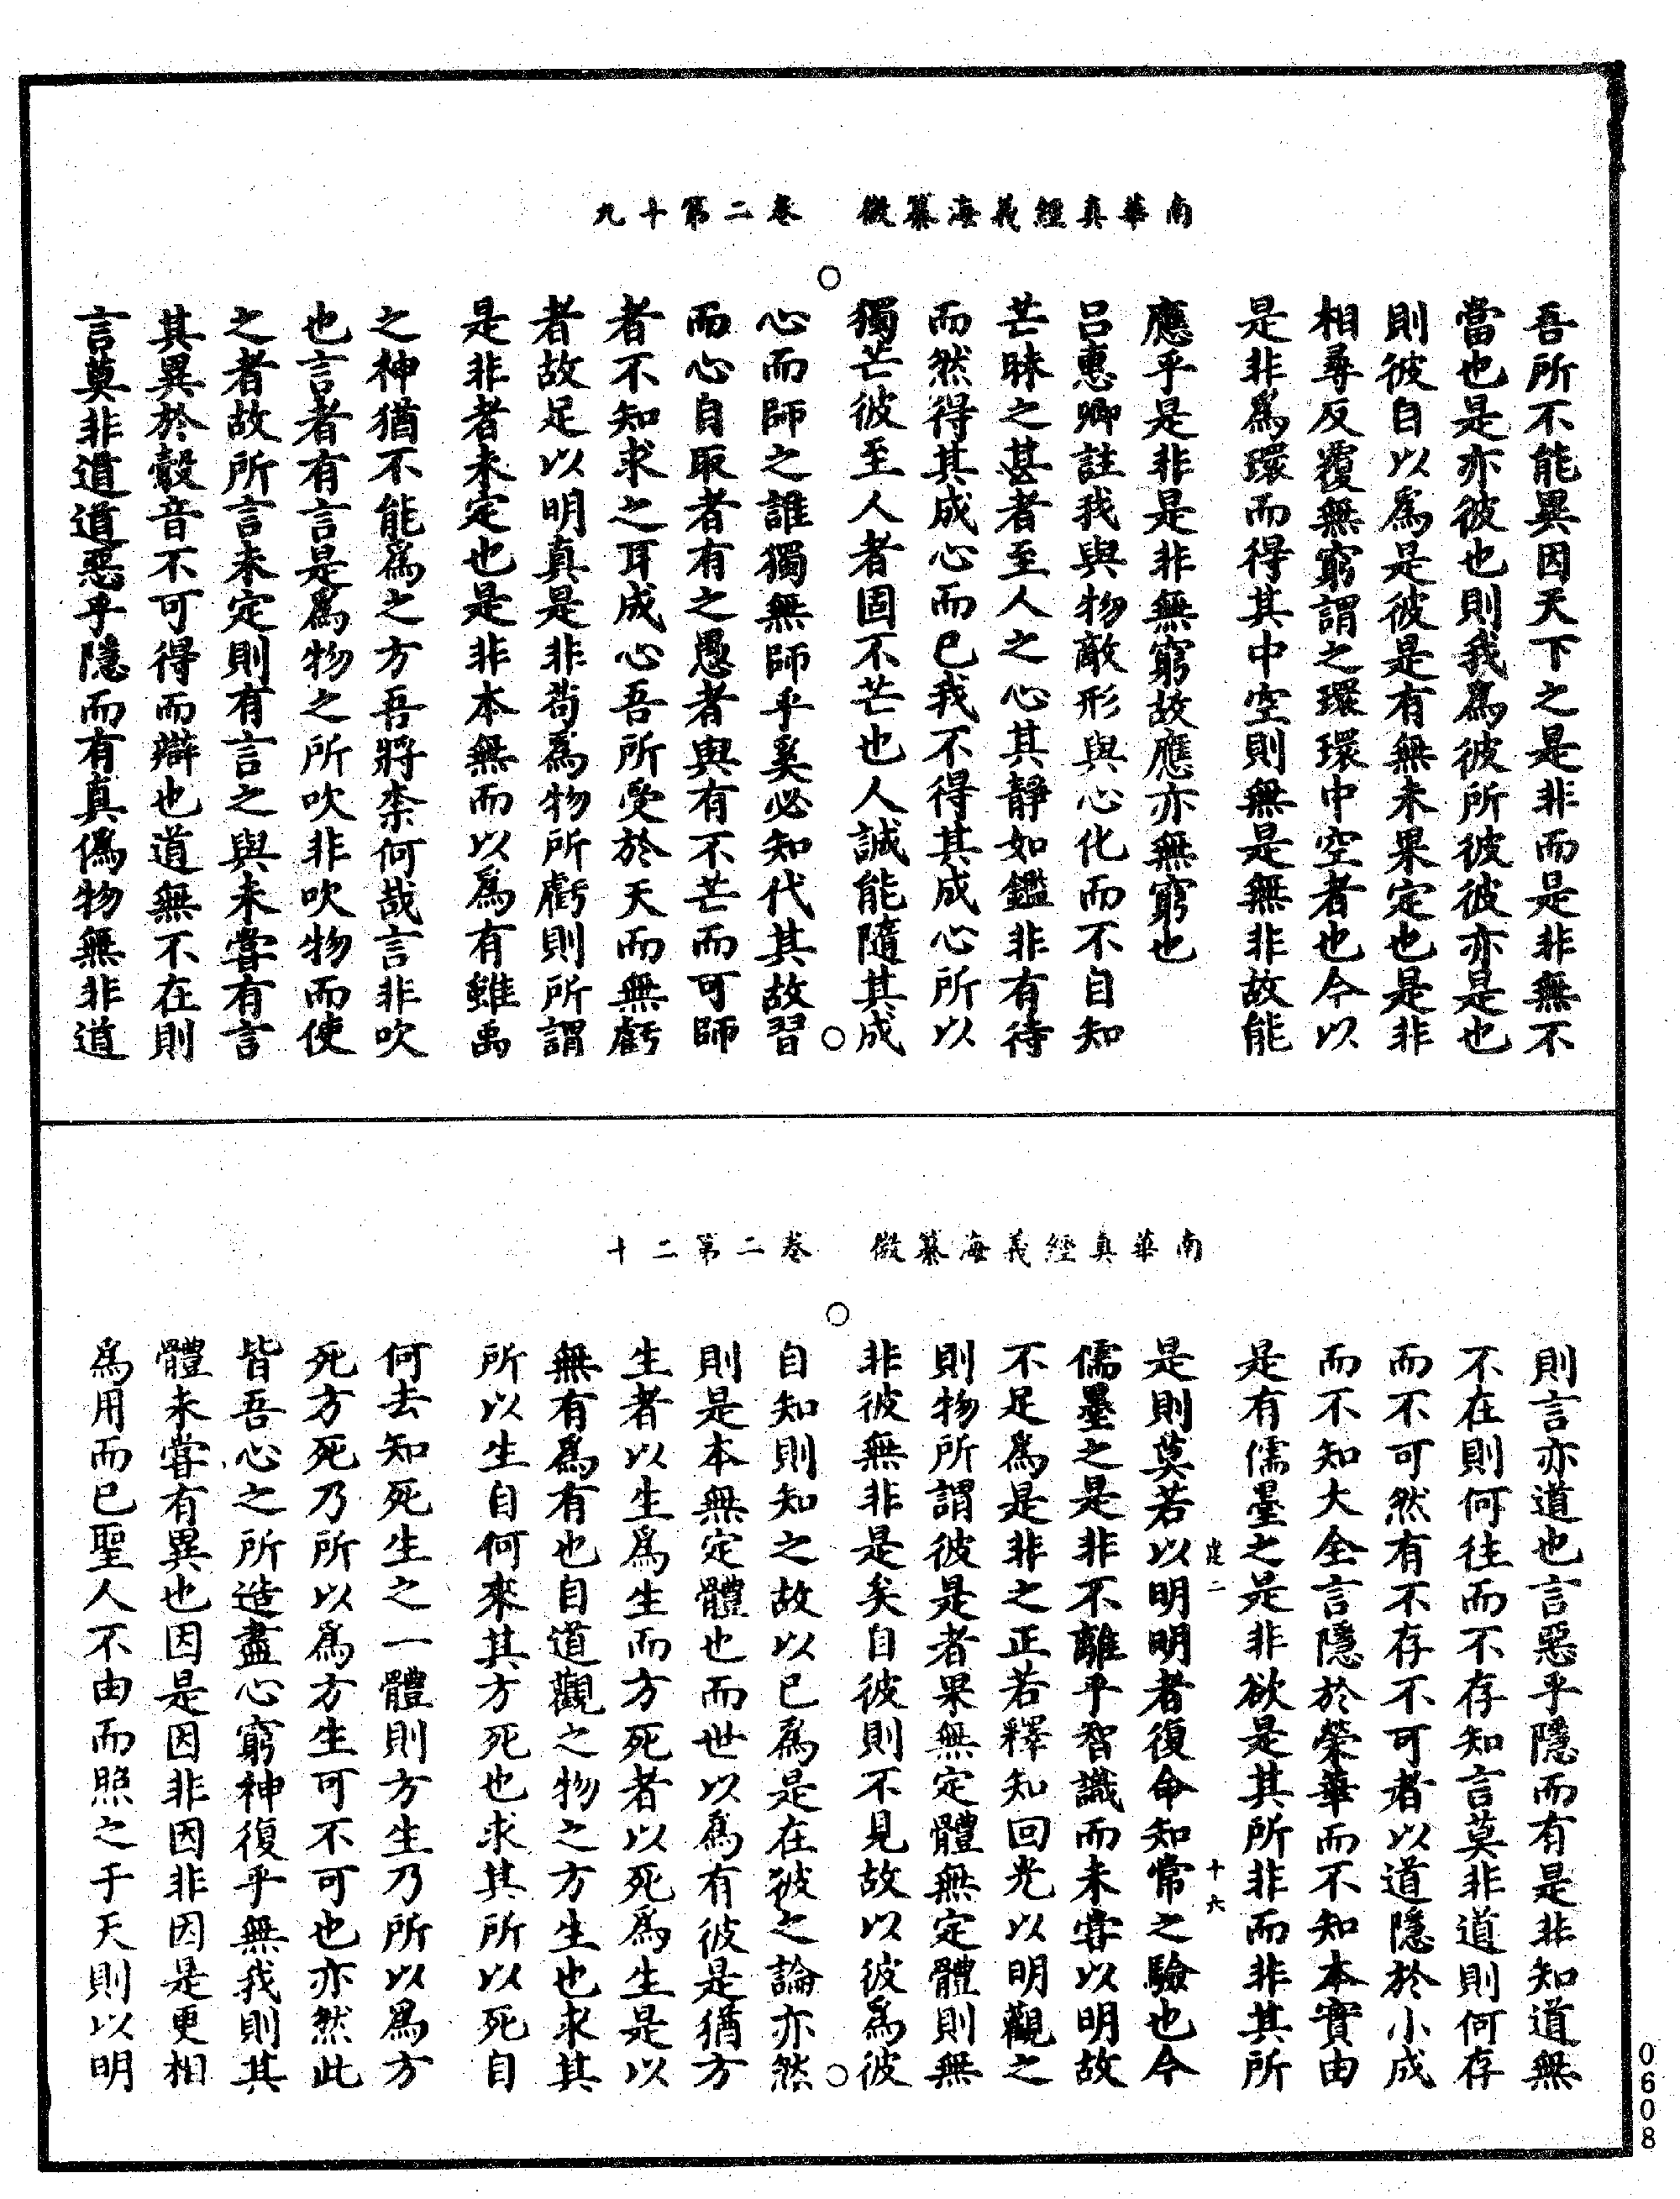 南華真經義海纂微　卷二第十九
吾所不能異因天下之是非而是非無不
當也是亦彼也則我爲彼所彼彼亦是也
則彼自以爲是彼是有無未果定也是非
相尋反覆無窮謂之環環中空者也今以
是非爲環而得其中空則無是無非故能
應乎是非是非無窮故應亦無窮也
呂惠卿註我與物敵形與心化而不自知
芒昧之甚者至人之心其靜如鑑非有待
而然得其成心而已我不得其成心所以
獨芒彼至人者固不芒也人誠能隨其成
心而師之誰獨無師乎奚必知代其故習
而心自取者有之愚者與有不芒而可師
者不知求之耳成心吾所受於天而無虧
者故足以明真是非苟爲物所虧則所謂
是非者未定也是非本無而以爲有雖禹
之神猶不能爲之方吾將柰何哉言非吹
也言者有言是爲物之所吹非吹物而使
之者故所言未定則有言之與未嘗有言
其異於鷇音不可得而辯也道無不在則
言莫非道道惡乎隱而有真僞物無非道
南華真經義海纂微　卷二第二十
則言亦道也言惡乎隱而有是非知道無
不在則何往而不存知言莫非道則何存
而不可然有不存不可者以道隱於小成
而不知大全言隱於榮華而不知本實由
是有儒墨之是非欲是其所非而非其所
是則莫若以明明者復命知常之驗也今
建二　十六
儒墨之是非不離乎智識而未嘗以明故
不足爲是非之正若釋知回光以明觀之
則物所謂彼是者果無定體無定體則無
非彼無非是矣自彼則不見故以彼爲彼
自知則知之故以已爲是在彼之論亦然
則是本無定體也而世以爲有彼是猶方
生者以生爲生而方死者以死爲生是以
無有爲有也自道觀之物之方生也求其
所以生自何來其方死也求其所以死自
何去知死生之一體則方生乃所以爲方
死方死乃所以爲方生可不可也亦然此
皆吾心之所造盡心窮神復乎無我則其
體未嘗有異也因是因非因非因是更相
爲用而已聖人不由而照之于天則以明
0608